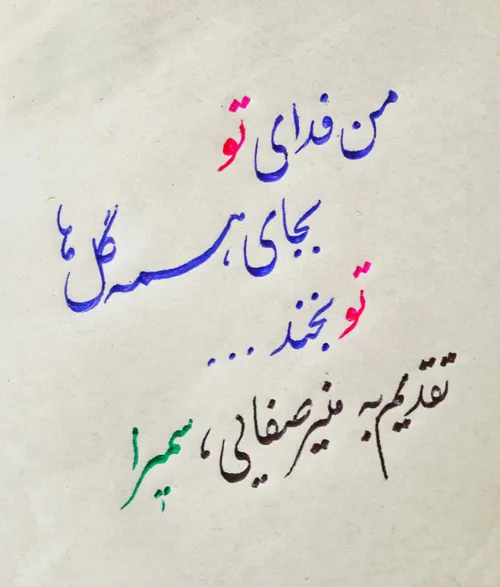 من فدای تو
بجای همه گل ها
تو بخند ...
تقدیم به منیر صفایی، سمیرا